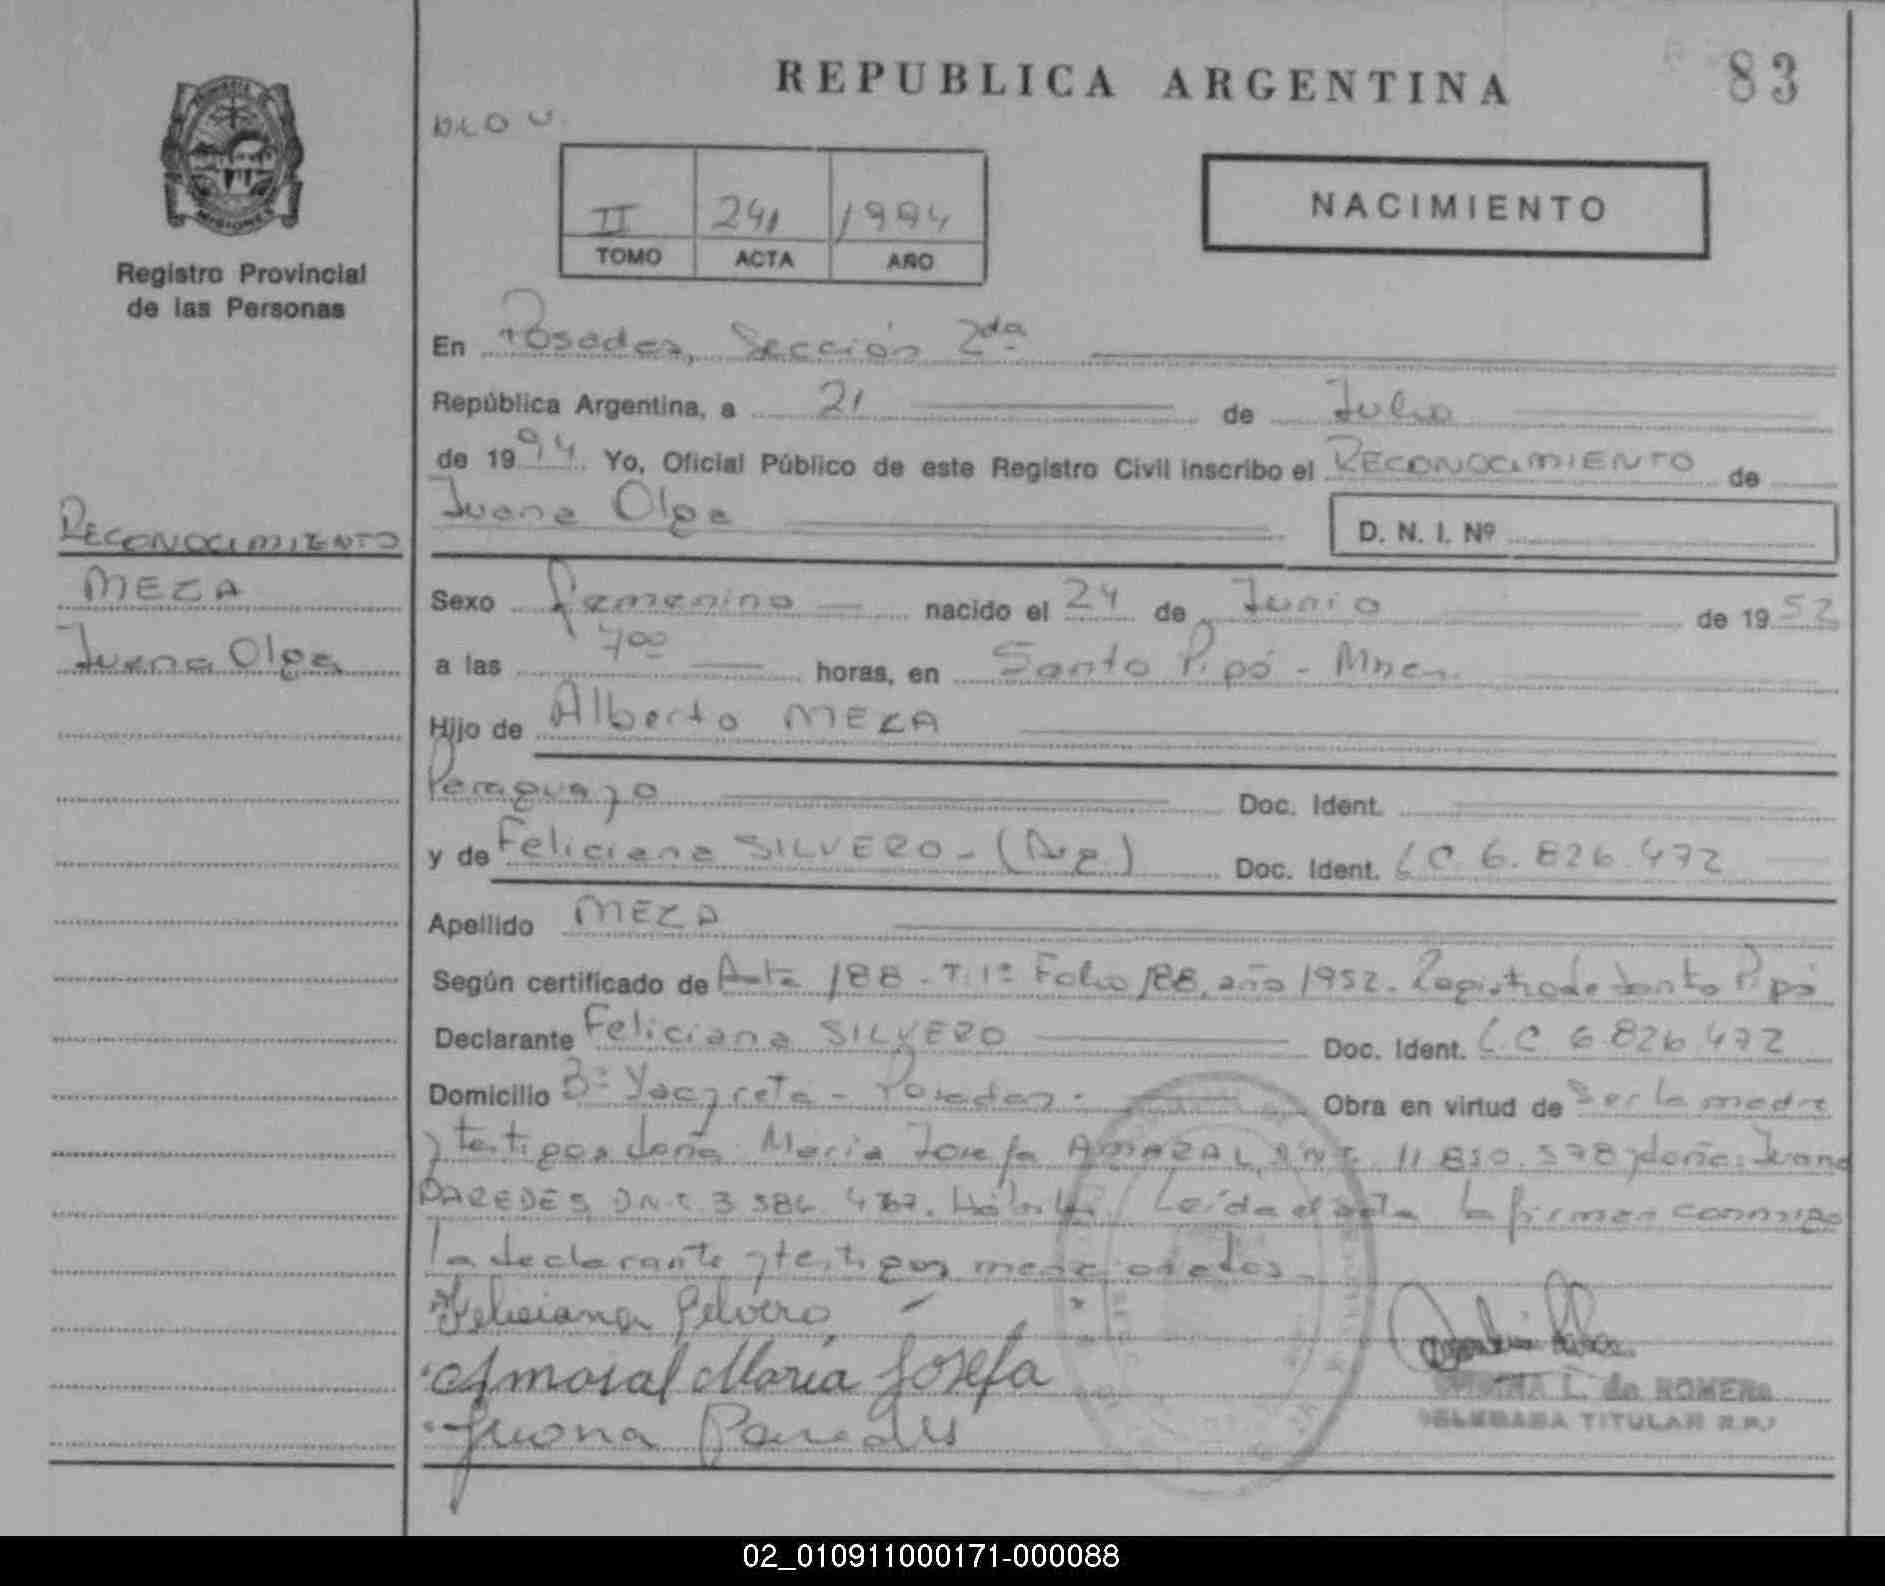 REPUBLICA ARGENTINA
83
NACIMIENTO
II 241 1994
TOMO ACTA AÑO
MISIONES
Registro Provincial
de las Personas
RECONOCIMIENTO
MEZA
Juana Olga
En Posadas, Sección 2da
República Argentina, a 21 de Julio
de 1994. Yo, Oficial Público de este Registro Civil inscribo el RECONOCIMIENTO de
Juana Olga
D. N. I. Nº
Sexo femenino nacido el 24 de Junio de 1952
a las 7oo horas, en Santo Pipó - Mnes.
Hijo de Alberto MEZA
Paraguayo Doc. Ident.
y de Feliciana SILVERO - (Arg.) Doc. Ident. LC 6.826.472
Apellido MEZA
Según certificado de Acta 188 - T: 1º Folio 188, año 1952. Registro de Santo Pipó
Declarante Feliciana SILVERO Doc. Ident. L.C 6.826.472
Domicilio Bº Yacyreta - Posadas. Obra en virtud de Ser la madre
y testigos doña María Josefa AMARAL, D.N.I. 11.810.578 y doña: Juana
PAREDES, D.N.I. 3.586. Leída el acta la firman conmigo
la declarante y testigos mencionados.
Feliciana Silvero
Amaral María Josefa
Juana Paredes
L. de ROMERO
DELEGADA TITULAR R.P.
02_010911000171-000088